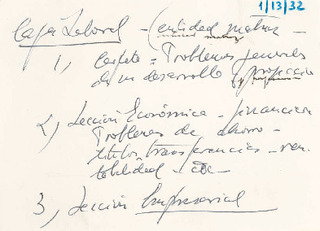 1/13/32
Caja Laboral - (entidad matriz -
1, Carpeta = Problemas generales
de un desarrollo y proyección
2, Sección Económica - financiera
Problemas de ahorro -
títulos, transferencias - ren-
tabilidad - etc -
3, Sección Empresarial